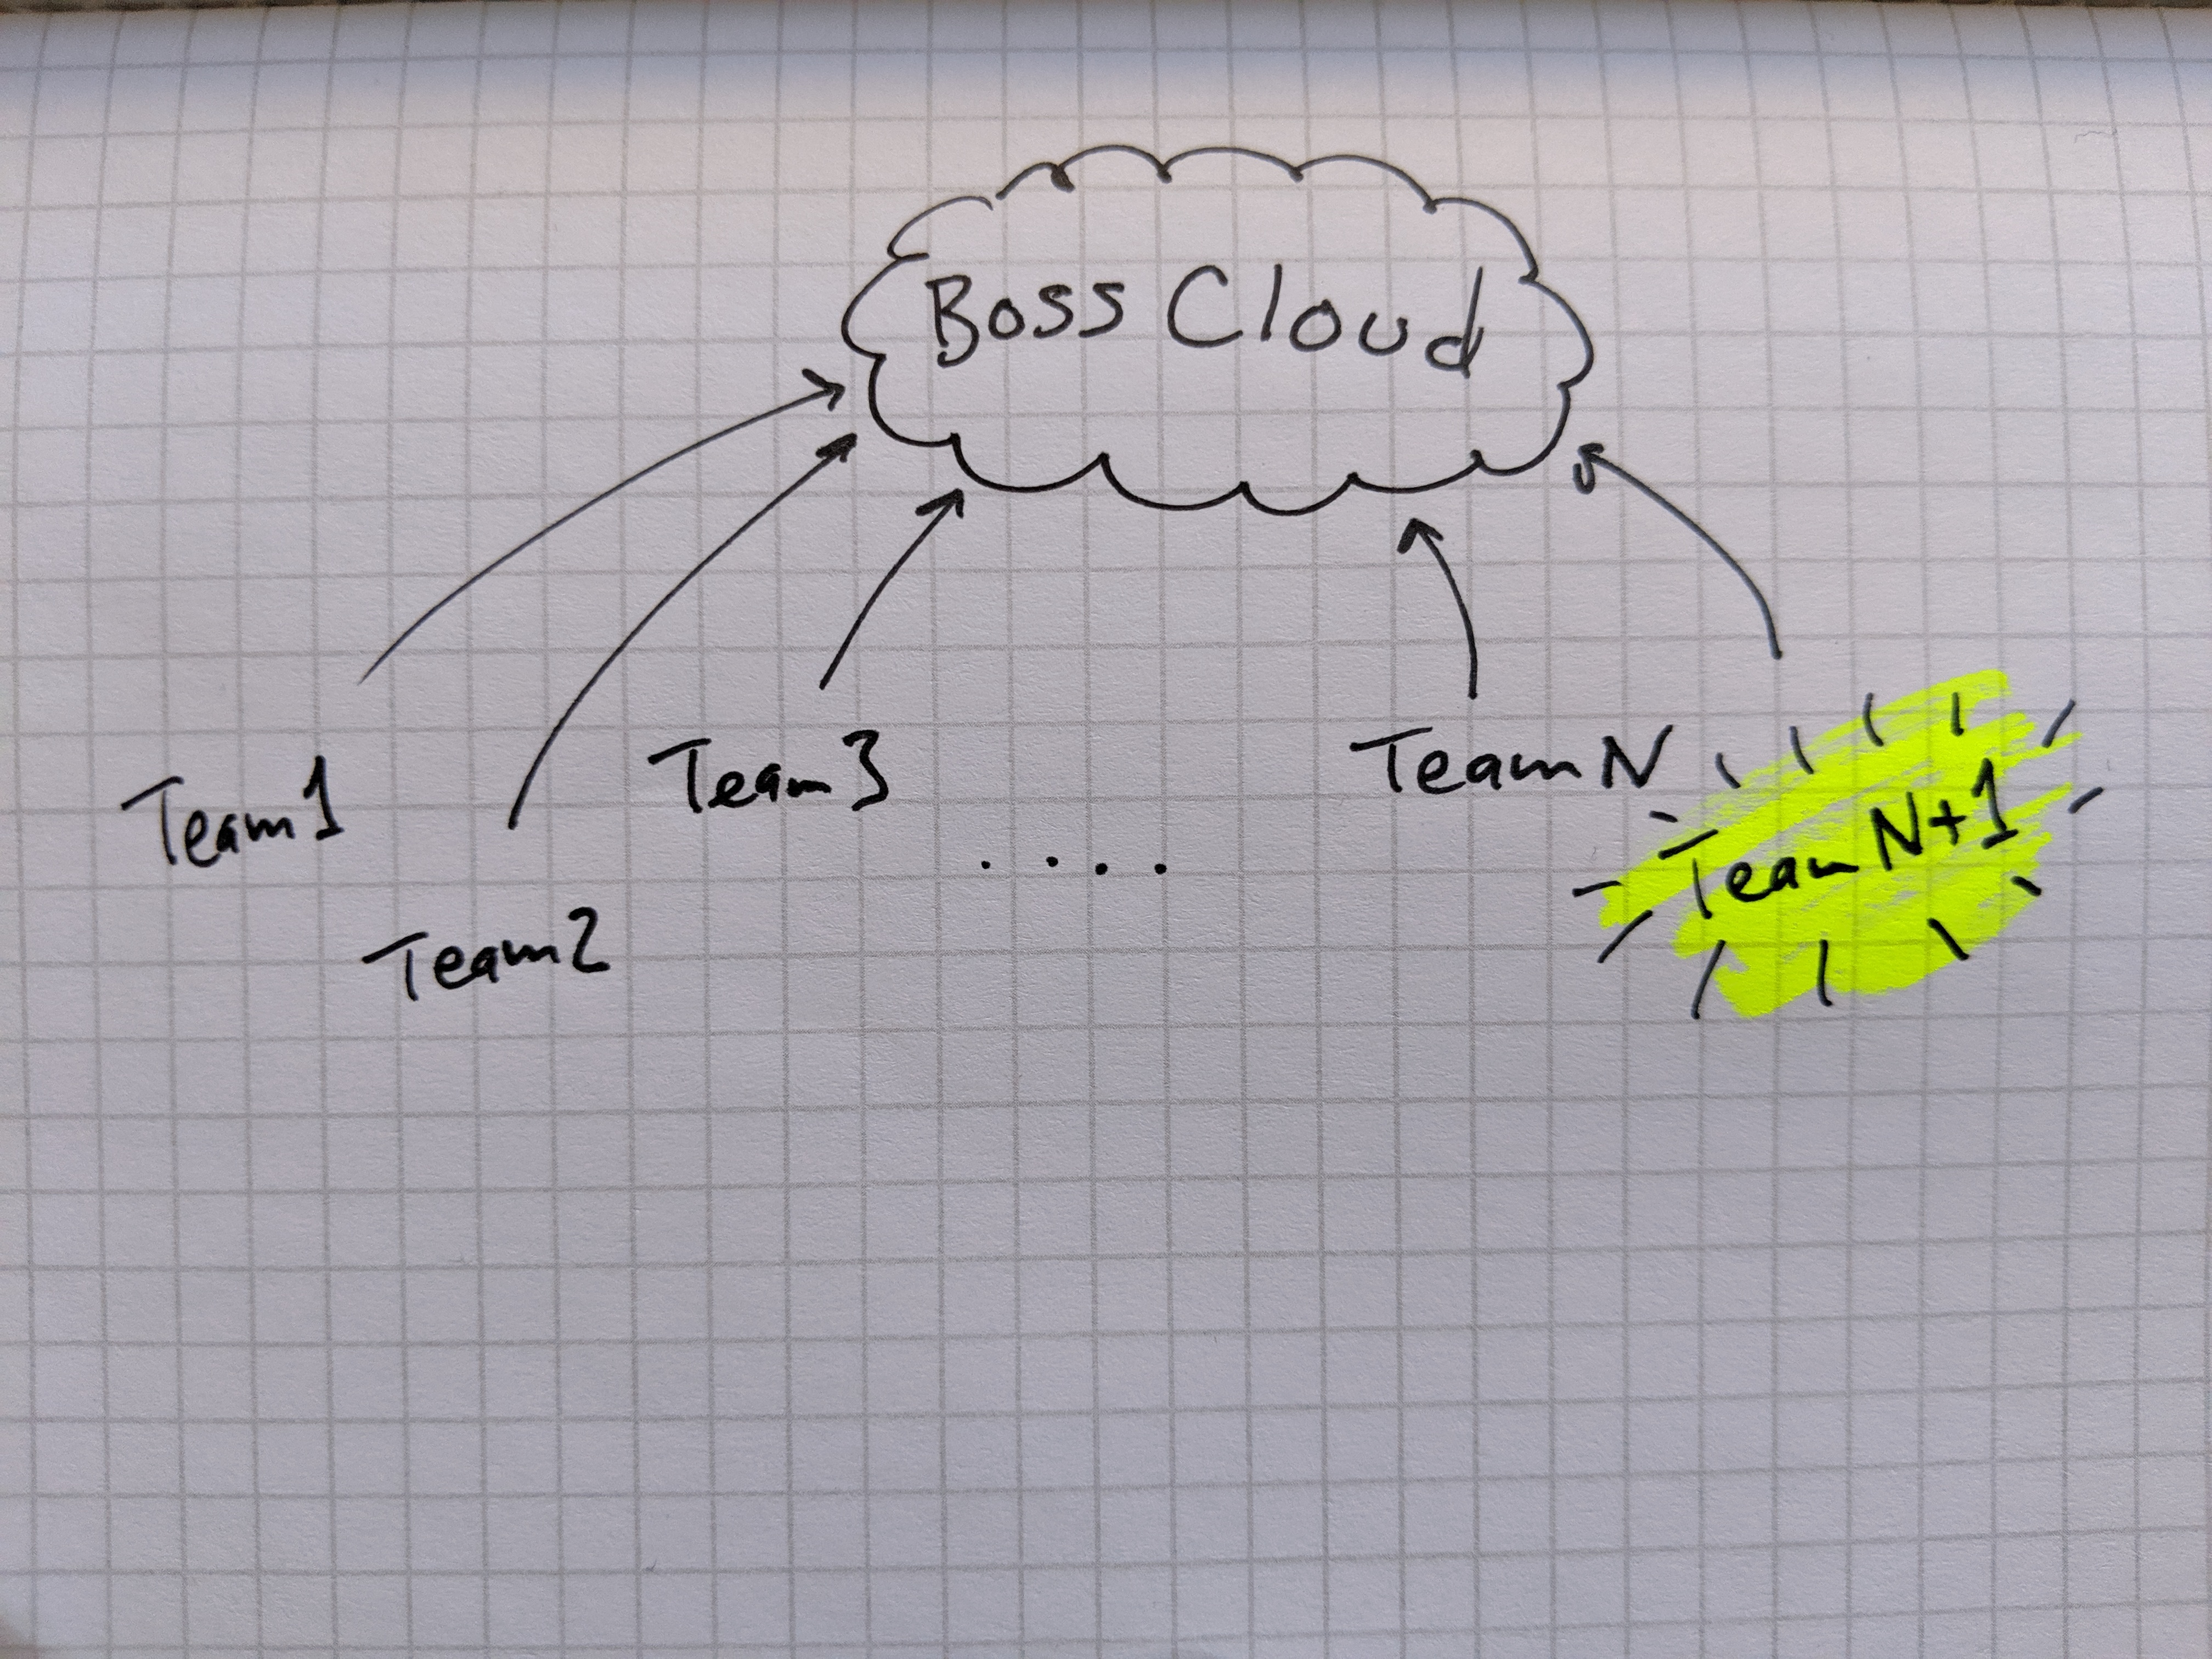 Boss Cloud
Team 1
Team 2
Team 3
....
Team N
Team N+1